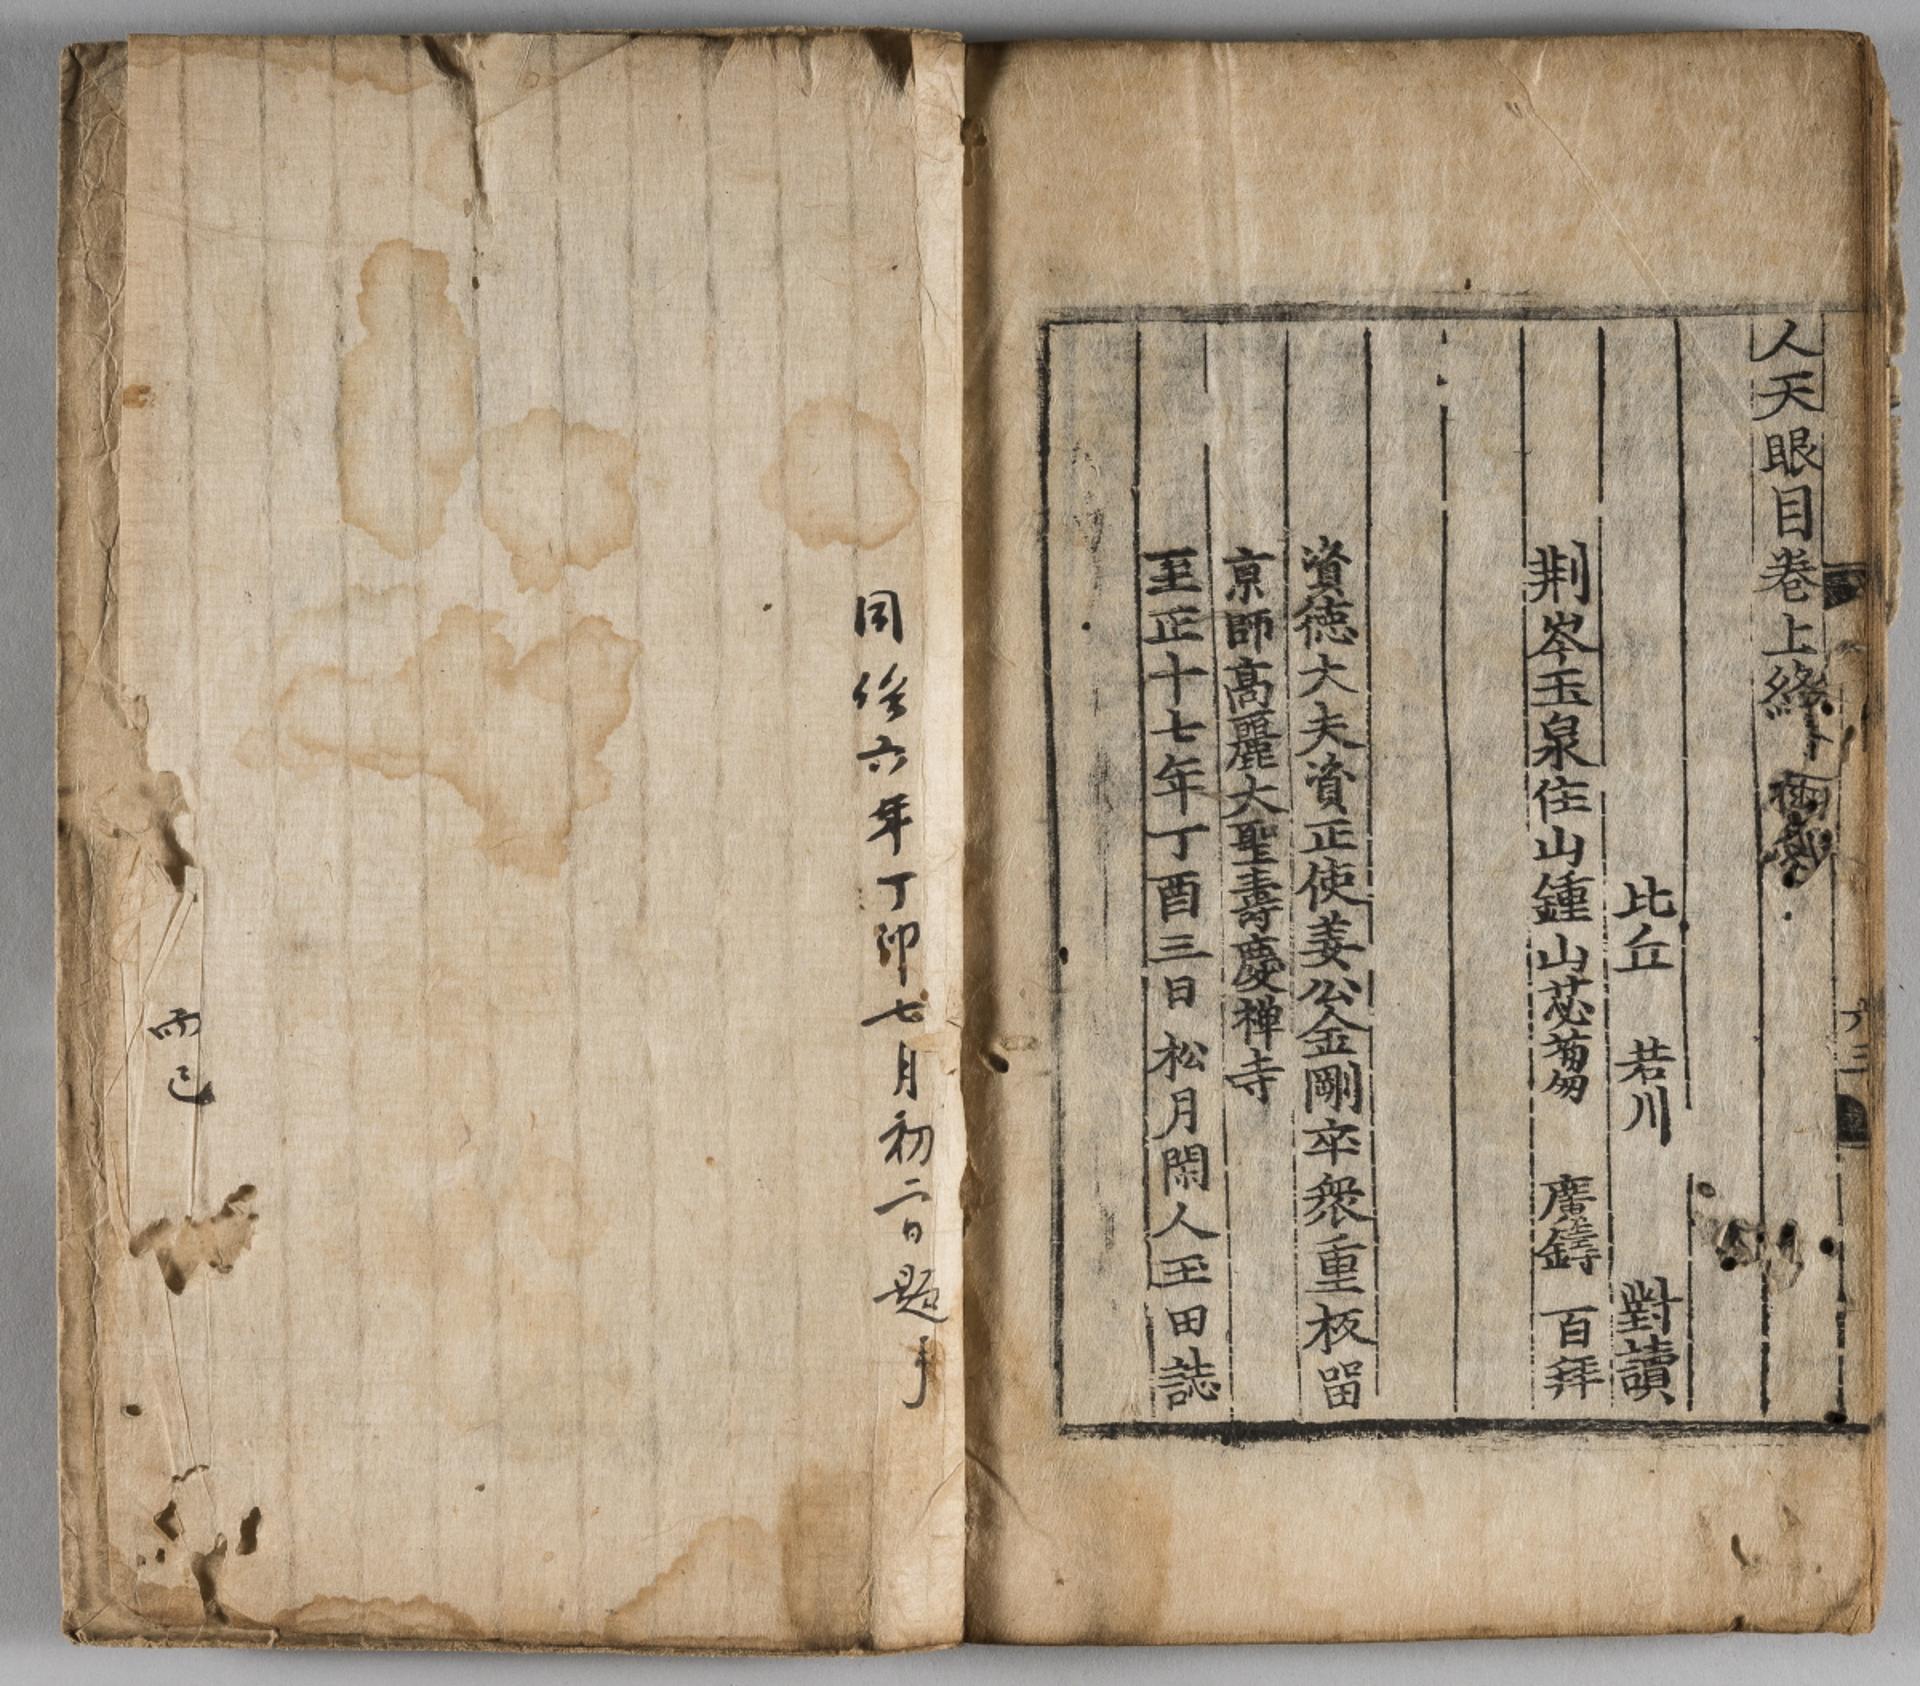 人天眼目卷上終
比丘 若川 對讀
荆岑玉泉住山鍾山苾蒭 廣鑄 百拜
資德大夫資正使姜公金剛卒衆重板留
京師高麗大聖壽慶禅寺
至正十七年丁酉三日松月閑人王田誌
同治六年丁卯七月初二日題
而已